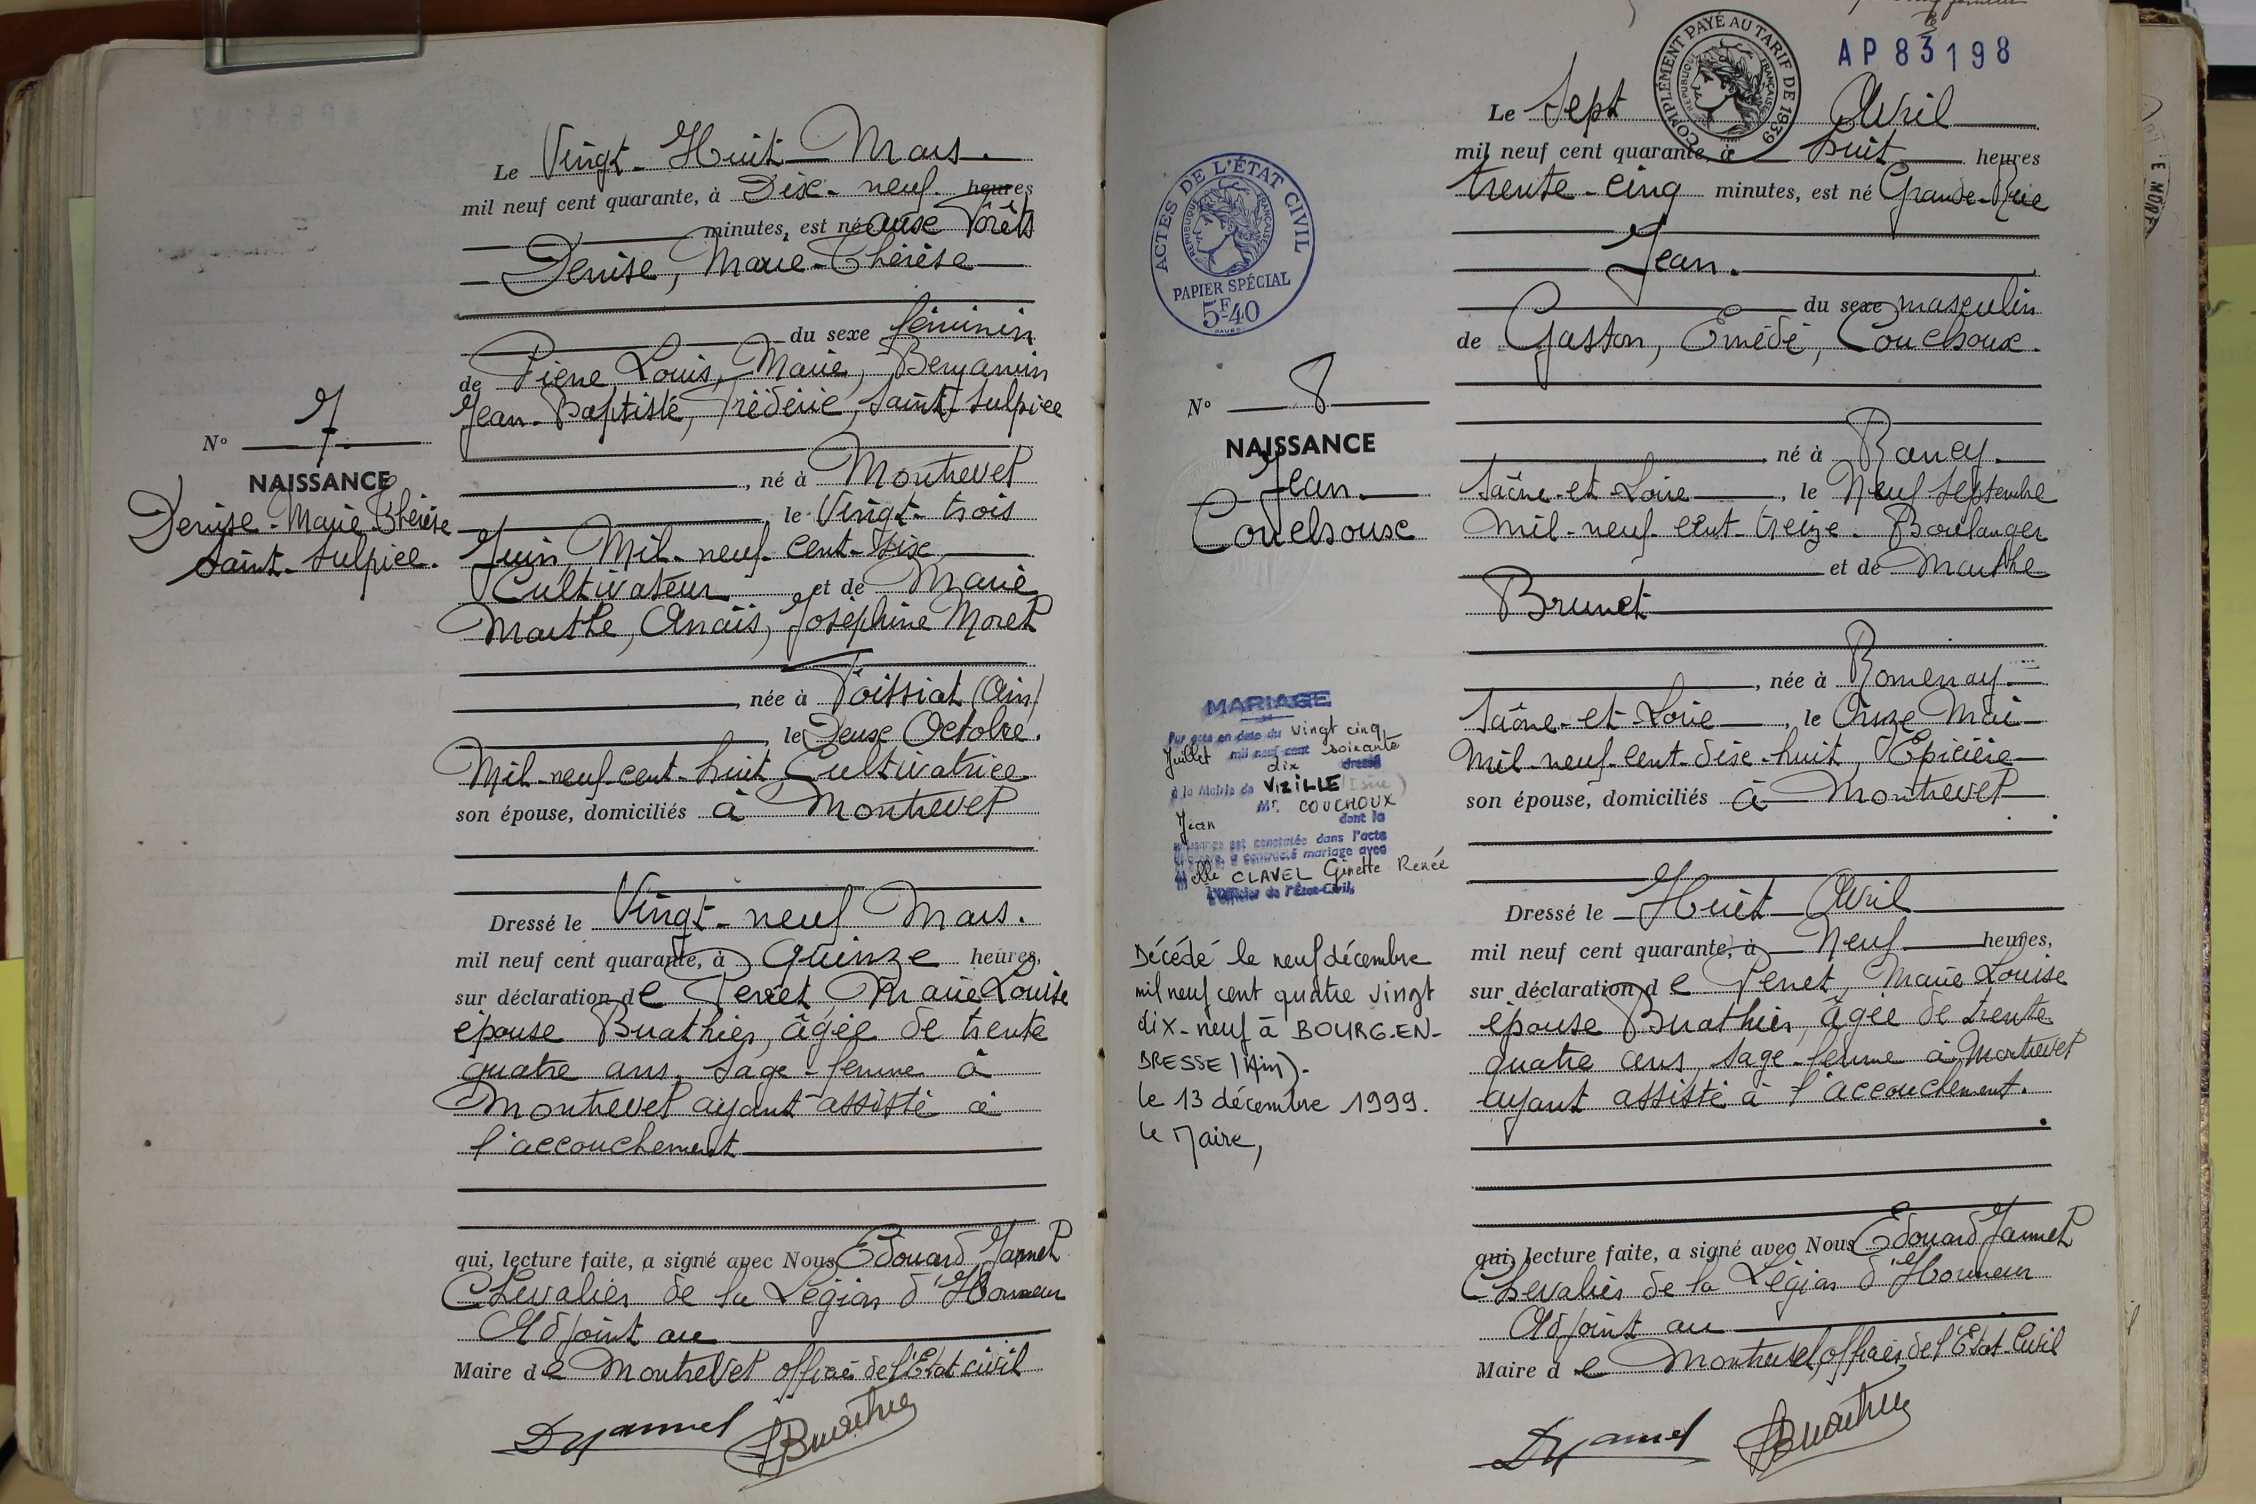 Le Vingt-Huit Mars.
mil neuf cent quarante, à Dix-neuf heures
minutes, est né aux Forêts
Denise, Marie-Thérèse
du sexe féminin
de Pierre, Louis, Marie, Benjamin
Jean-Baptiste, Frédéric, Saint-Sulpice
N° 7
NAISSANCE
Denise-Marie Thérèse
Saint-Sulpice.
, né à Montrevel
le Vingt-trois
Juin Mil-neuf-cent-six
Cultivateur et de Marie
Marthe, Anaïs, Joséphine Morel
, née à Foissiat (Ain)
, le Deux Octobre.
Mil-neuf-cent-huit Cultivatrice
son épouse, domiciliés à Montrevel
Dressé le Vingt-neuf Mars.
mil neuf cent quarante, à Quinze heures,
sur déclaration de Perret, Marie Louise
épouse Buathier, âgée de trente
quatre ans, Sage-femme à
Montrevel ayant assisté à
l'accouchement
qui, lecture faite, a signé avec Nous Edouard Jannel
Chevalier de la Légion d'Honneur
Adjoint au
Maire de Montrevel officier de l'Etat civil
AP 83198
COMPLÉMENT PAYÉ AU TARIF DE 1939
RÉPUBLIQUE FRANÇAISE
Le Sept Avril
mil neuf cent quarante, à huit heures
trente-cinq minutes, est né Grande-Rue
Jean.
du sexe masculin
de Gaston, Emédé, Couchoux.
ACTES DE L'ÉTAT CIVIL
RÉPUBLIQUE FRANÇAISE
PAPIER SPÉCIAL
5F40
N° 8
NAISSANCE
Jean
Couchoux
, né à Rancy.
Saône-et-Loire, le Neuf Septembre
mil-neuf-cent-treize. Boulanger
et de Marthe
Brunet
, née à Romenay.
Saône-et-Loire, le Onze Mai
Mil-neuf-cent-dix-huit, Epicière
son épouse, domiciliés à Montrevel
MARIAGE
Par acte en date du vingt cinq
Juillet mil neuf cent soixante
dix dressé
à la Mairie de VIZILLE (Isère)
Mr. COUCHOUX
Jean dont la
naissance est constatée dans l'acte
a contracté mariage avec
Melle CLAVEL Ginette Renée
L'Officier de l'État-Civil,
Décédé le neuf décembre
mil neuf cent quatre vingt
dix-neuf à BOURG-EN-
BRESSE (Ain).
le 13 décembre 1999.
Le Maire,
Dressé le Huit Avril
mil neuf cent quarante, à Neuf heures,
sur déclaration de Perret, Marie Louise
épouse Buathier, âgée de trente
quatre ans, Sage-femme à Montrevel
ayant assisté à l'accouchement.
qui, lecture faite, a signé avec Nous Edouard Jannel
Chevalier de la Légion d'Honneur
Adjoint au
Maire de Montrevel, officier de l'Etat-Civil